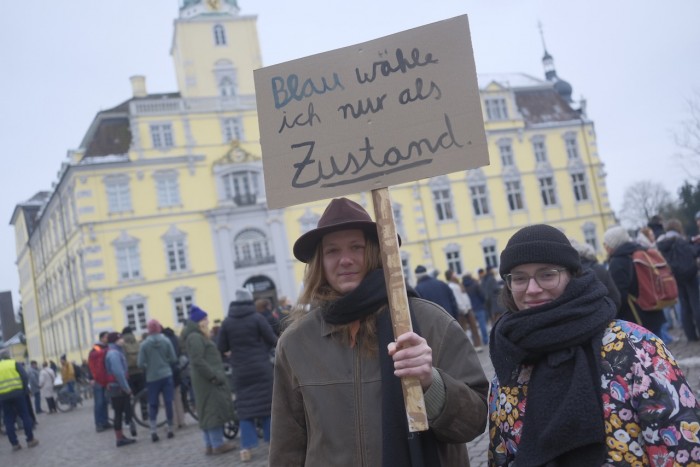 Blau wähle
ich nur als
Zustand.